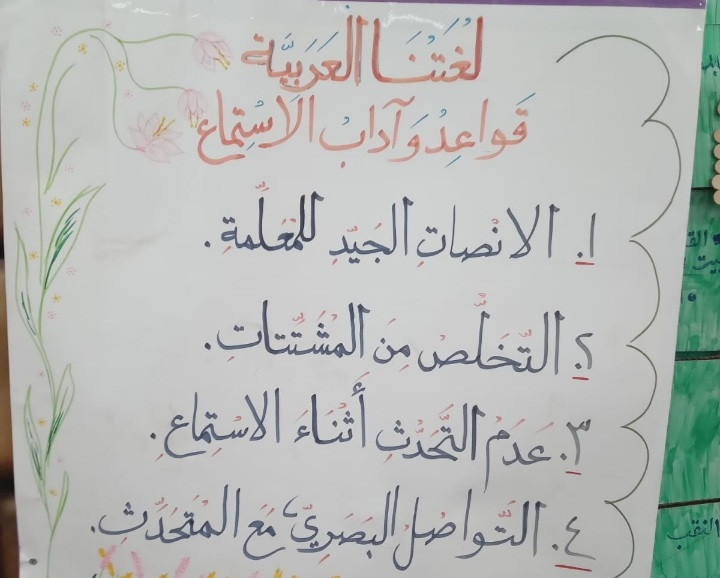 لُغَتُنَا العَرَبِيَّة
قَواعِدُ وَآدابُ الاسْتِماع
١. الانْصاتِ الجَيّدِ للمُعَلِّمةِ.
٢. التّخَلّص مِنَ المُشَتّتاتِ.
٣. عَدَمُ التَّحَدُّثِ أَثْنَاءَ الاسْتِماعِ.
٤. التَّواصُلُ البَصَرِيّ مَعَ المُتَحَدِّثِ.
النقب